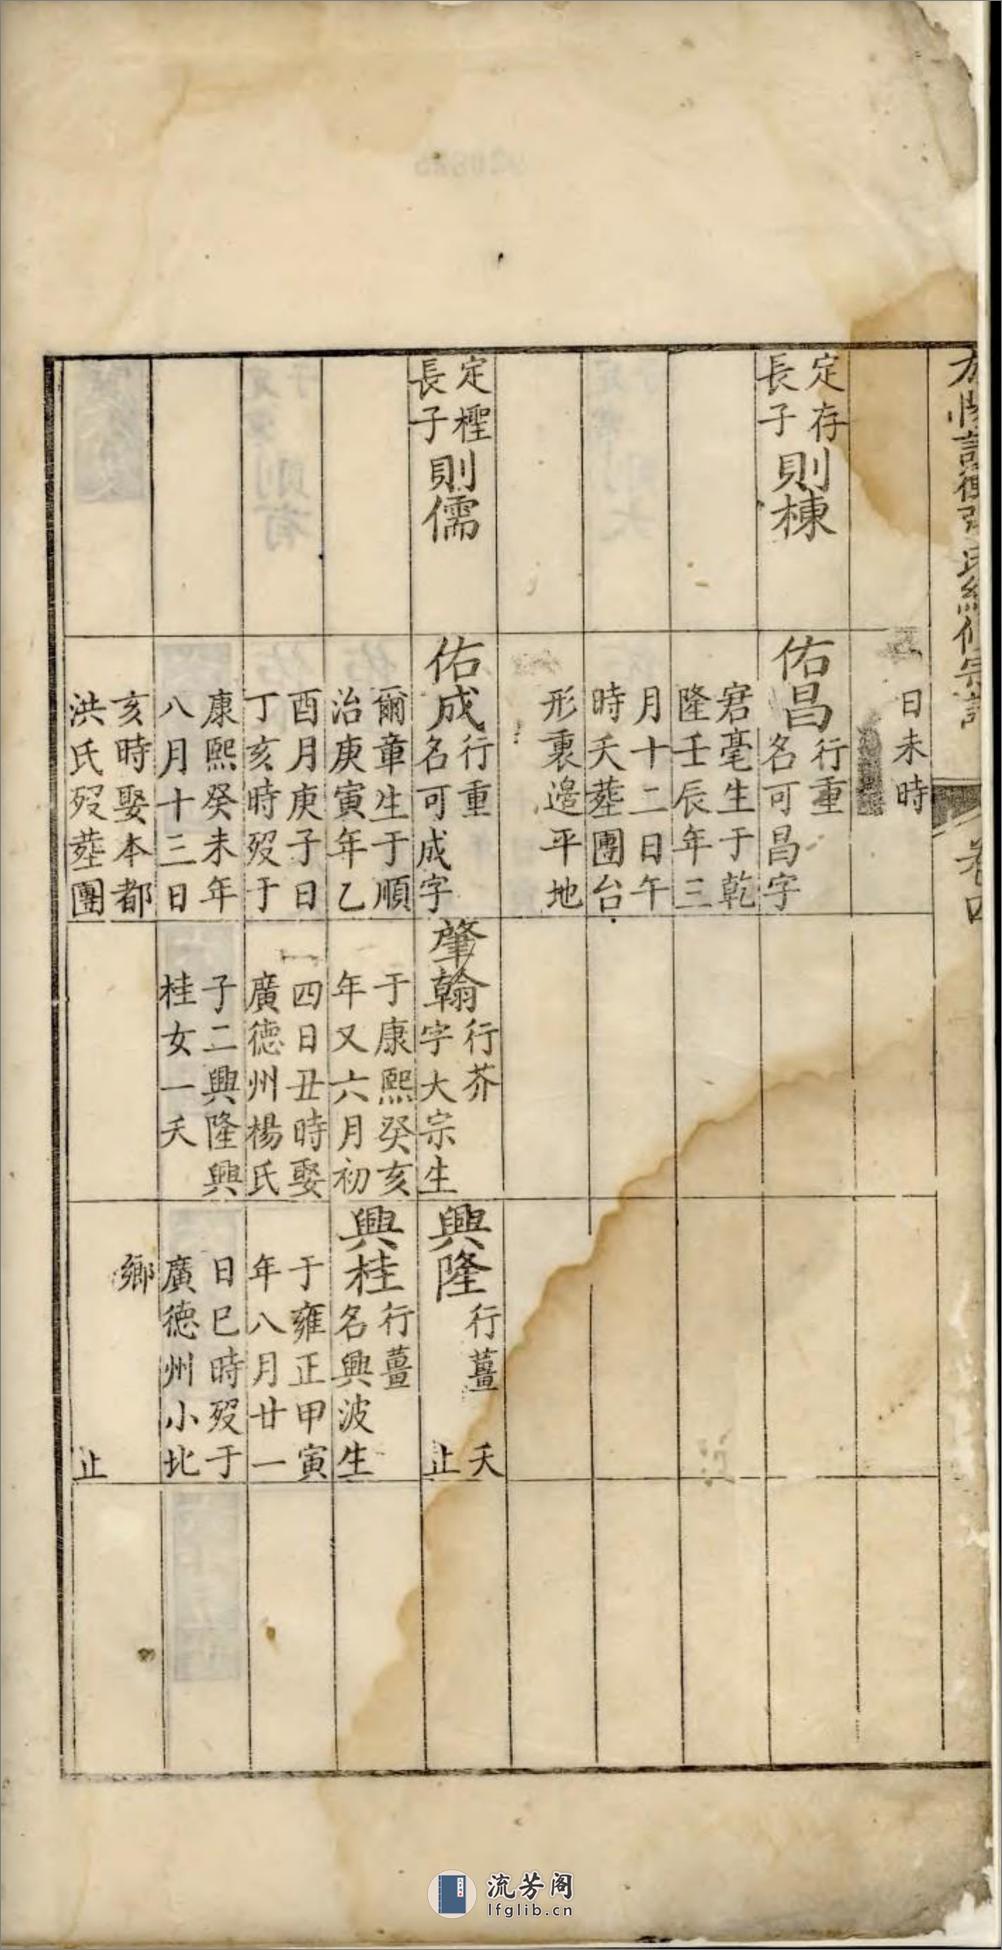 張氏續修宗譜
卷四
日未時
定存
長子
則棟
佑昌
行重
名可昌字
君毫生于乾
隆壬辰年三
月十二日午
時夭葬團台
形裏邉平地
定檉
長子
則儒
佑成
行重
名可成字
爾章生于順
治庚寅年乙
酉月庚子日
丁亥時歿于
康熙癸未年
八月十三日
亥時娶本都
洪氏歿葬團
肇翰
行芥
字大宗生
于康熙癸亥
年又六月初
四日丑時娶
廣德州楊氏
子二興隆興
桂女一夭
興隆
行薑
夭
止
興桂
行薑
名興波生
于雍正甲寅
年八月廿一
日巳時歿于
廣德州小北
鄉
止
流芳阁
lfglib.cn